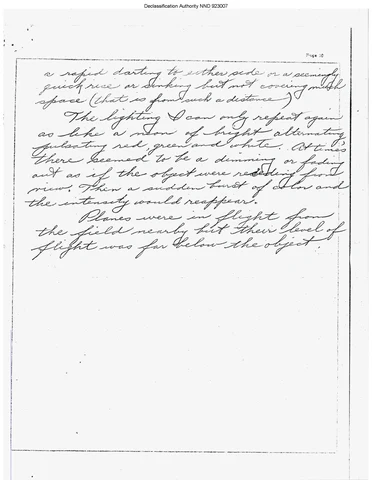 Declassification Authority NND 923007
Page 10
a rapid darting to either side or a seemingly
quick rise or sinking but not covering much
space (that is from such a distance)
The lighting I can only repeat again
as like a neon of bright alternating
pulsating red, green and white. At times
there seemed to be a dimming or fading
out as if the object were receding from
view. Then a sudden burst of color and
the intensity would reappear.
Planes were in flight from
the field nearby but their level of
flight was far below the object.